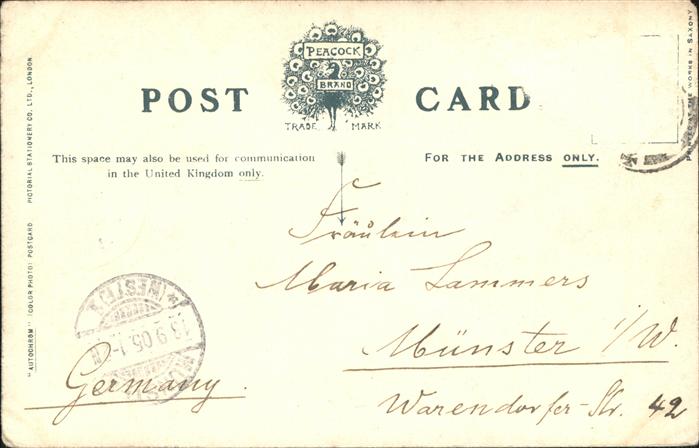 PEACOCK
BRAND
TRADE MARK
POST CARD
This space may also be used for communication
in the United Kingdom only.
FOR THE ADDRESS ONLY.
Fräulein
Maria Lammers
Münster i/W.
Warendorfer-Str. 42
Germany.
(WESTF.)
13.9.05.
"AUTOCHROM" (COLOR PHOTO) POSTCARD PICTORIAL STATIONERY CO. LTD., LONDON
AT THE WORKS IN SAXONY